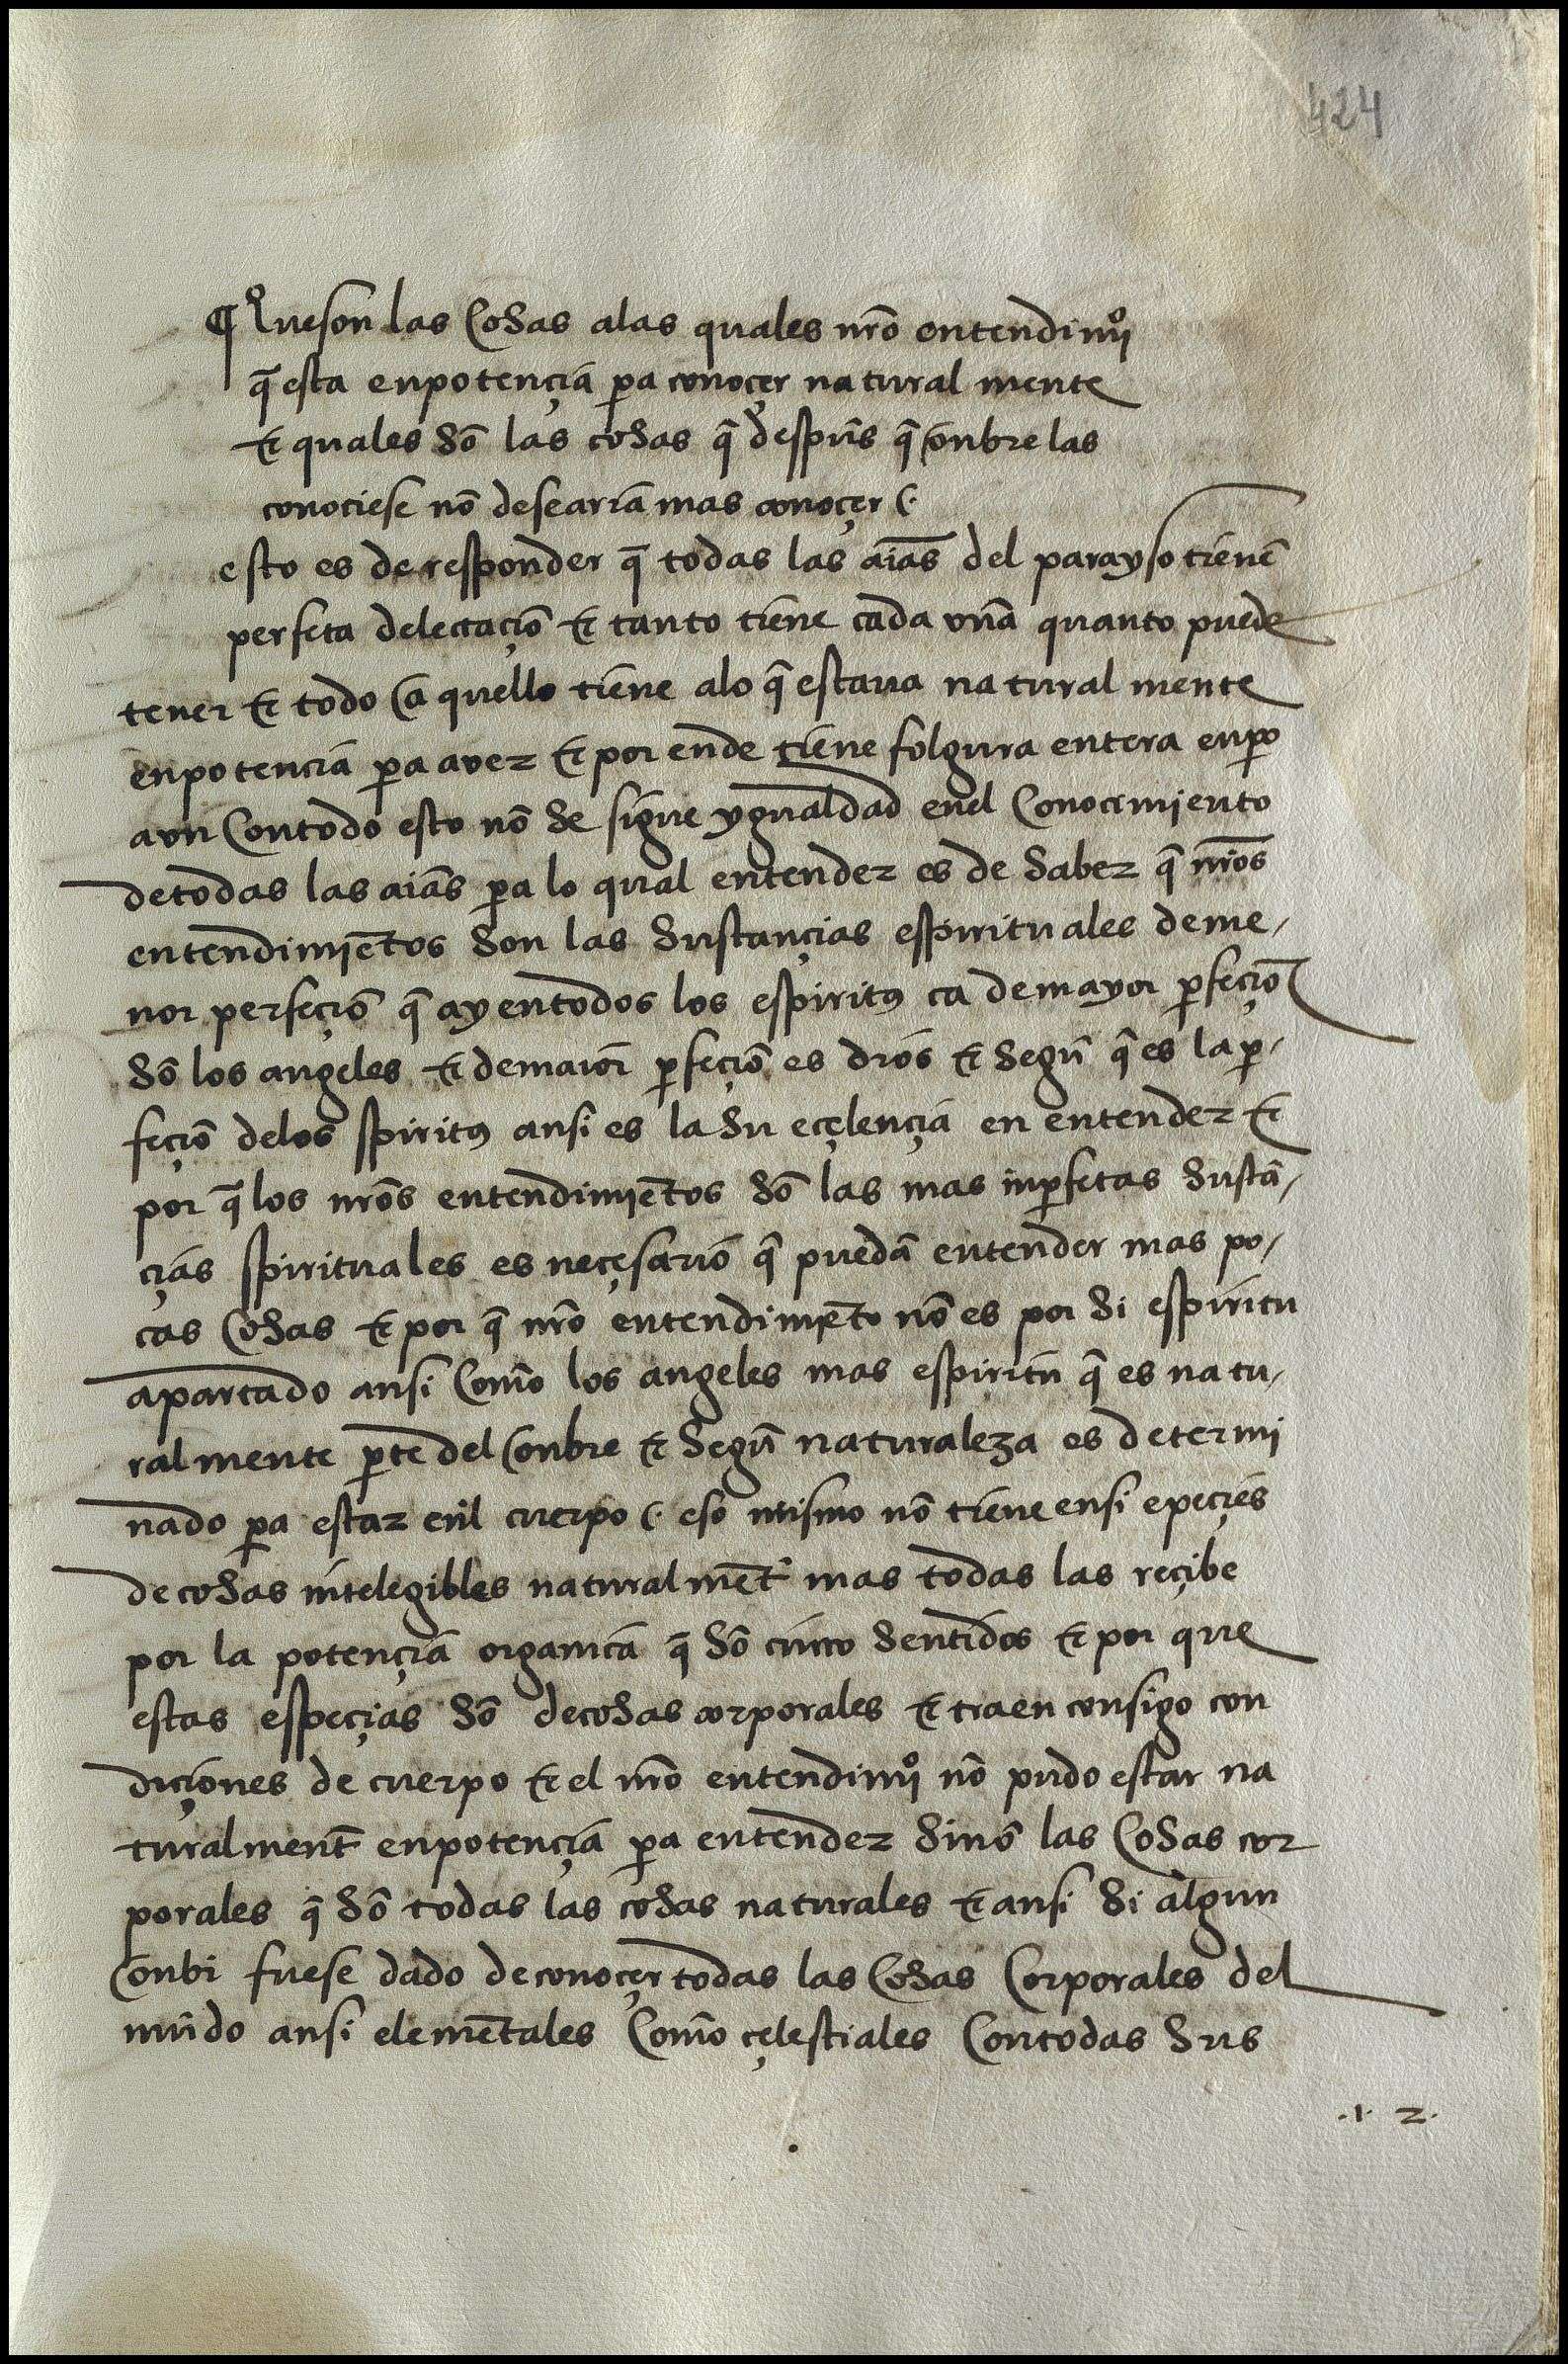 424
¶ Que son las Cosas alas quales nr̃o entendimiº
q̃ esta enpotençia pa conoçer natural mente
⁊ quales sõ las cosas q̃ despũs q̃ onbre las
conociese nõ desearia mas conoçer (.
esto es de responder q̃ todas las aĩas del parayso tienẽ
perfeta delectaçiõ ⁊ tanto tiene cada vna quanto puede
tener ⁊ todo a quello tiene alo q̃ estaua natural mente
enpotencia pa aver ⁊ por ende tiene folgura entera enpo
avn Contodo esto nõ se sigue ygualdad enel Conocimiento
detodas las aĩas pa lo qual entender es de saber q̃ nr̃os
entendimiẽtos son las sustançias espirituales deme-
nor perfeçiõ q̃ ay entodos los espiritꝯ ca demayor pfeçiõ
sõ los angeles ⁊ demaior pfeçiõ es dios ⁊ segũ q̃ es la p-
feçiõ delos spiritꝯ ansi es la su eçelençia en entender ⁊
por q̃ los nr̃os entendimiẽtos sõ las mas inpfetas sustã-
çias spirituales es neçesario q̃ puedã entender mas po-
cas Cosas ⁊ por q̃ nr̃o entendimiẽto nõ es por si espiritu
apartado ansi Como los angeles mas espiritu q̃ es natu-
ral mente pte del onbre ⁊ segũ naturaleza es determi
nado pa estar enl cuerpo (. eso mismo nõ tiene ensi epeçies
de cosas intelegibles natural mẽt mas todas las reçibe
por la potençia organica q̃ sõ cinco sentidos ⁊ por que
estas espeçias sõ decosas corporales ⁊ traen consigo con
diçiones de cuerpo ⁊ el nr̃o entendimiº nõ pudo estar na
turalment enpotençia pa entender sino las Cosas cor
porales q̃ sõ todas las cosas naturales ⁊ ansi si algun
onbr fuese dado de conoçer todas las Cosas Corporales del
mũdo ansi elemẽtales Como çelestiales Contodas sus
.1. 2.